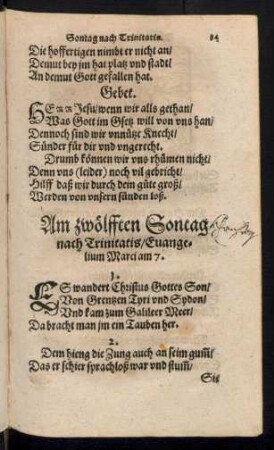 Sontag nach Trinitatis. 84
Die hoffertigen nimbt er nicht an/
Demut bey jm hat platz vnd stadt/
An demut Gott gefallen hat.
Gebet.
HErr Jesu/wenn wir alls gethan/
Was Gott im Gsetz will von vns han/
Dennoch sind wir vnnütze Knecht/
Sünder für dir vnd vngerecht.
Drumb können wir vns rhümen nicht/
Denn vns (leider) noch vil gebricht/
Hilff daß wir durch dein güte groß/
Werden von vnsern sünden loß.
Am zwölfften Sontag
nach Trinitatis/Euange-
lium Marci am 7.
1.
ES wandert Christus Gottes Son/
Von Grentzen Tyri vnd Sydon/
Vnd kam zum Galileer Meer/
Da bracht man jm ein Tauben her.
2.
Dem hieng die Zung auch an seim gum̃/
Das er schier sprachloß war vnd stum̃/
Sie